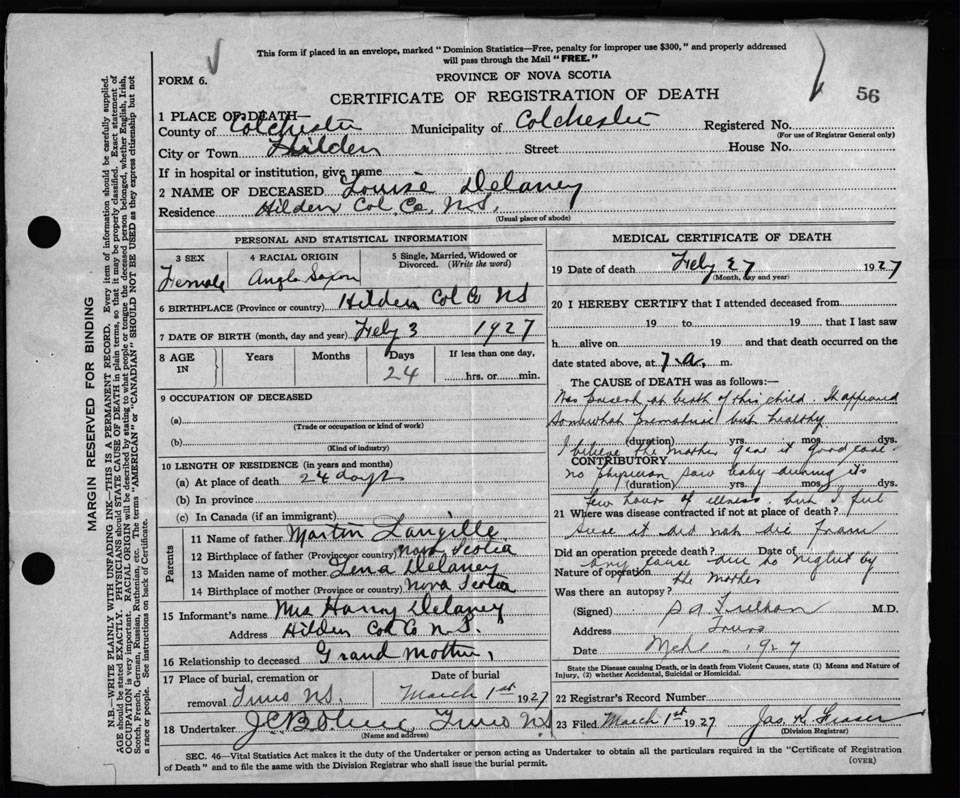 This form if placed in an envelope, marked "Dominion Statistics—Free, penalty for improper use $300," and properly addressed
will pass through the Mail "FREE."
FORM 6.
PROVINCE OF NOVA SCOTIA
CERTIFICATE OF REGISTRATION OF DEATH
56
1 PLACE OF DEATH—
County of Colchester Municipality of Colchester Registered No.
(For use of Registrar General only)
City or Town Hilden Street House No.
If in hospital or institution, give name
2 NAME OF DECEASED Louise Delaney
Residence Hilden Col. Co. N.S.
(Usual place of abode)
PERSONAL AND STATISTICAL INFORMATION
3 SEX 4 RACIAL ORIGIN 5 Single, Married, Widowed or
Divorced. (Write the word)
Female Anglo Saxon
6 BIRTHPLACE (Province or country) Hilden Col Co NS
7 DATE OF BIRTH (month, day and year) Feby 3 1927
8 AGE IN Years Months Days If less than one day,
24 hrs. or min.
9 OCCUPATION OF DECEASED
(a)
(Trade or occupation or kind of work)
(b)
(Kind of industry)
10 LENGTH OF RESIDENCE (in years and months)
(a) At place of death 24 days
(b) In province
(c) In Canada (if an immigrant)
Parents
11 Name of father Martin Langille
12 Birthplace of father (Province or country) Nova Scotia
13 Maiden name of mother Lena Delaney
14 Birthplace of mother (Province or country) Nova Scotia
15 Informant's name Mrs Harry Delaney
Address Hilden Col Co N.S.
16 Relationship to deceased Grand Mother
17 Place of burial, cremation or Date of burial
removal Truro N.S. March 1st 1927
18 Undertaker Truro N.S.
(Name and address)
MEDICAL CERTIFICATE OF DEATH
19 Date of death Feby 27 1927
(Month, day and year)
20 I HEREBY CERTIFY that I attended deceased from
19 to 19 that I last saw
h alive on 19 and that death occurred on the
date stated above, at 7 a. m.
The CAUSE of DEATH was as follows:—
Was present at birth of this child. It appeared
somewhat premature but healthy
(duration) yrs. mos. dys.
I believe the mother gave it good care.
CONTRIBUTORY
no physician saw baby during it's
(duration) yrs. mos. dys.
few hours of illness. but I feel
21 Where was disease contracted if not at place of death?
sure it did not die from
Did an operation precede death? Date of
any cause due to neglect by
Nature of operation
the mother
Was there an autopsy?
(Signed) M.D.
Address Truro
Date 1927
State the Disease causing Death, or in death from Violent Causes, state (1) Means and Nature of
Injury, (2) whether Accidental, Suicidal or Homicidal.
22 Registrar's Record Number
23 Filed March 1st 1927 Jas. K. Fraser
(Division Registrar)
SEC. 46—Vital Statistics Act makes it the duty of the Undertaker or person acting as Undertaker to obtain all the particulars required in the "Certificate of Registration
of Death" and to file the same with the Division Registrar who shall issue the burial permit.
(OVER)
MARGIN RESERVED FOR BINDING
N.B.—WRITE PLAINLY WITH UNFADING INK—THIS IS A PERMANENT RECORD. Every item of information should be carefully supplied.
AGE should be stated EXACTLY. PHYSICIANS should STATE CAUSE OF DEATH in plain terms, so that it may be properly classified. Exact statement of
OCCUPATION is very important. RACIAL ORIGIN will be described by stating to what people or tongue the deceased person belonged, whether English, Irish,
Scotch, French, German, Russian, Ruthenian, etc. The terms "AMERICAN" or "CANADIAN" SHOULD NOT BE USED as they express citizenship but not
a race or people. See instructions on back of Certificate.